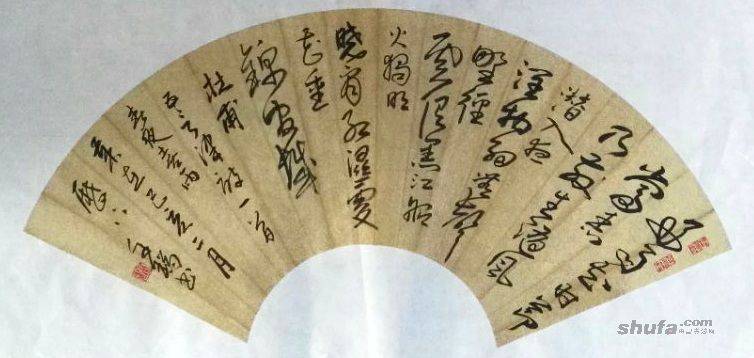 好雨知時節
當春
乃發生隨風
潜入夜
潤物細無聲
野徑
雲俱黑江船
火獨明
曉看紅濕處
花重
錦官城
杜甫
五言律詩一首
春夜喜雨
歲在己亥二月
shufa.com